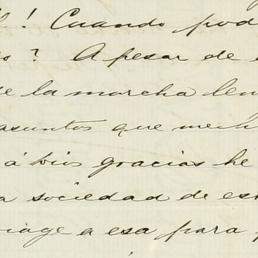 ! Cuando pod
? A pesar de
de la marcha len
asuntos que me h
á Dios gracias he
a sociedad de es
viage a esa para